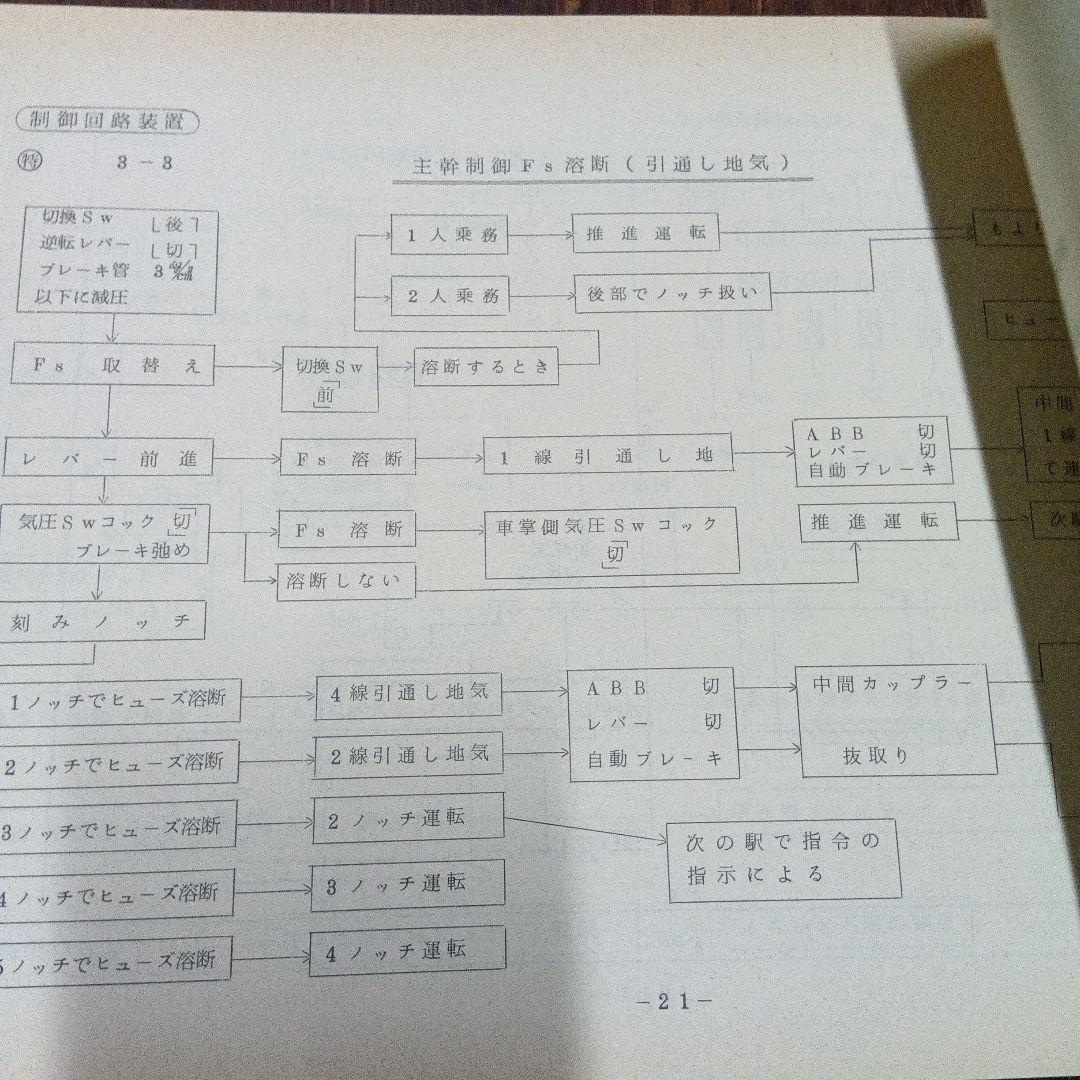 制御回路装置
特 3-3
主幹制御Fs溶断(引通し地気)
切換Sw 「後」
逆転レバー 「切」
ブレーキ管 3㎏/㎠
以下に減圧
1人乗務
推進運転
もより
2人乗務
後部でノッチ扱い
ヒュー
Fs 取替え
切換Sw
「前」
溶断するとき
中間
1線
て運
レバー前進
Fs 溶断
1線引通し地
ABB 切
レバー 切
自動ブレーキ
気圧Swコック「切」
ブレーキ弛め
Fs 溶断
車掌側気圧Swコック
「切」
推進運転
次
溶断しない
刻みノッチ
1ノッチでヒューズ溶断
4線引通し地気
ABB 切
レバー 切
自動ブレーキ
中間カップラー
抜取り
2ノッチでヒューズ溶断
2線引通し地気
3ノッチでヒューズ溶断
2ノッチ運転
次の駅で指令の
指示による
4ノッチでヒューズ溶断
3ノッチ運転
5ノッチでヒューズ溶断
4ノッチ運転
-21-